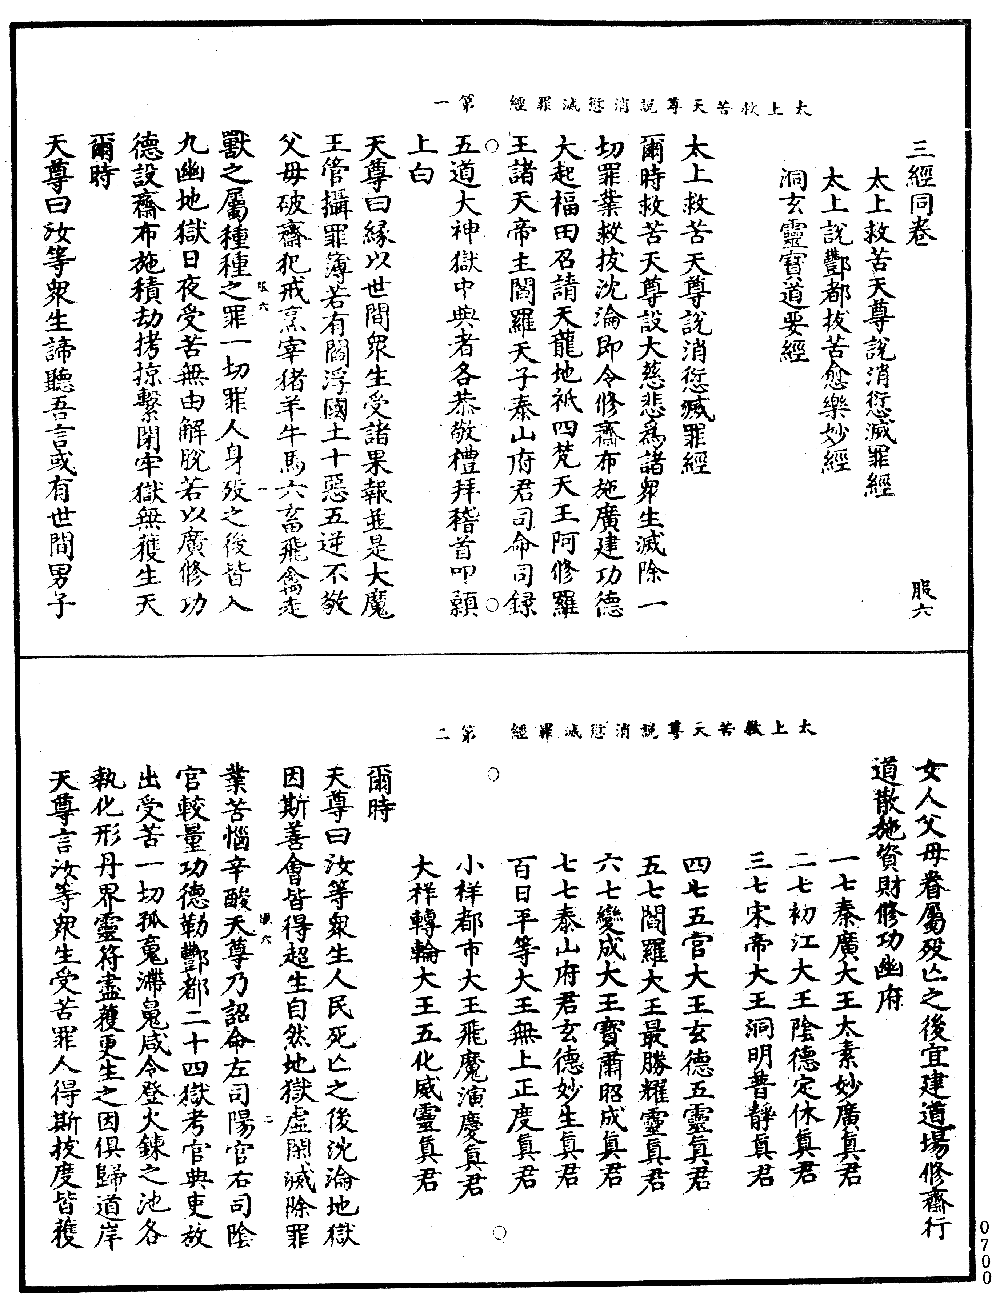 三經同卷　服六
太上救苦天尊說消愆滅罪經
太上說酆都拔苦愈樂妙經
洞玄靈寶道要經
太上救苦天尊說消愆滅罪經　第一
太上救苦天尊說消愆滅罪經
爾時救苦天尊設大慈悲爲諸衆生滅除一
切罪業救拔沈淪即令修齋布施廣建功德
大起福田召請天龍地祇四梵天王阿修羅
王諸天帝主閻羅天子泰山府君司命司録
五道大神獄中典者各恭敬禮拜稽首叩顙
上白
天尊曰緣以世間衆生受諸果報並是大魔
王管攝罪簿若有閻浮國土十惡五逆不敬
父母破齋犯戒烹宰猪羊牛馬六畜飛禽走
獸之屬種種之罪一切罪人身殁之後皆入
服六　一
九幽地獄日夜受苦無由解脫若以廣修功
德設齋布施積劫拷掠繫閉牢獄無獲生天
爾時
天尊曰汝等衆生諦聽吾言或有世間男子
太上救苦天尊說消愆滅罪經　第二
女人父母眷屬殁亡之後宜建道場修齋行
道散施資財修功幽府
一七秦廣大王太素妙廣真君
二七初江大王陰德定休真君
三七宋帝大王洞明普靜真君
四七五官大王玄德五靈真君
五七閻羅大王最勝耀靈真君
六七變成大王寶肅昭成真君
七七泰山府君玄德妙生真君
百日平等大王無上正度真君
小祥都市大王飛魔演慶真君
大祥轉輪大王五化威靈真君
爾時
天尊曰汝等衆生人民死亡之後沈淪地獄
因斯善會皆得超生自然地獄虛閑滅除罪
服六　二
業苦惱辛酸天尊乃詔命左司陽官右司陰
官較量功德勒酆都二十四獄考官典吏放
出受苦一切孤䰟滯鬼咸令登火鍊之池各
執化形丹界靈符盡獲更生之因俱歸道岸
天尊言汝等衆生受苦罪人得斯拔度皆獲
0700